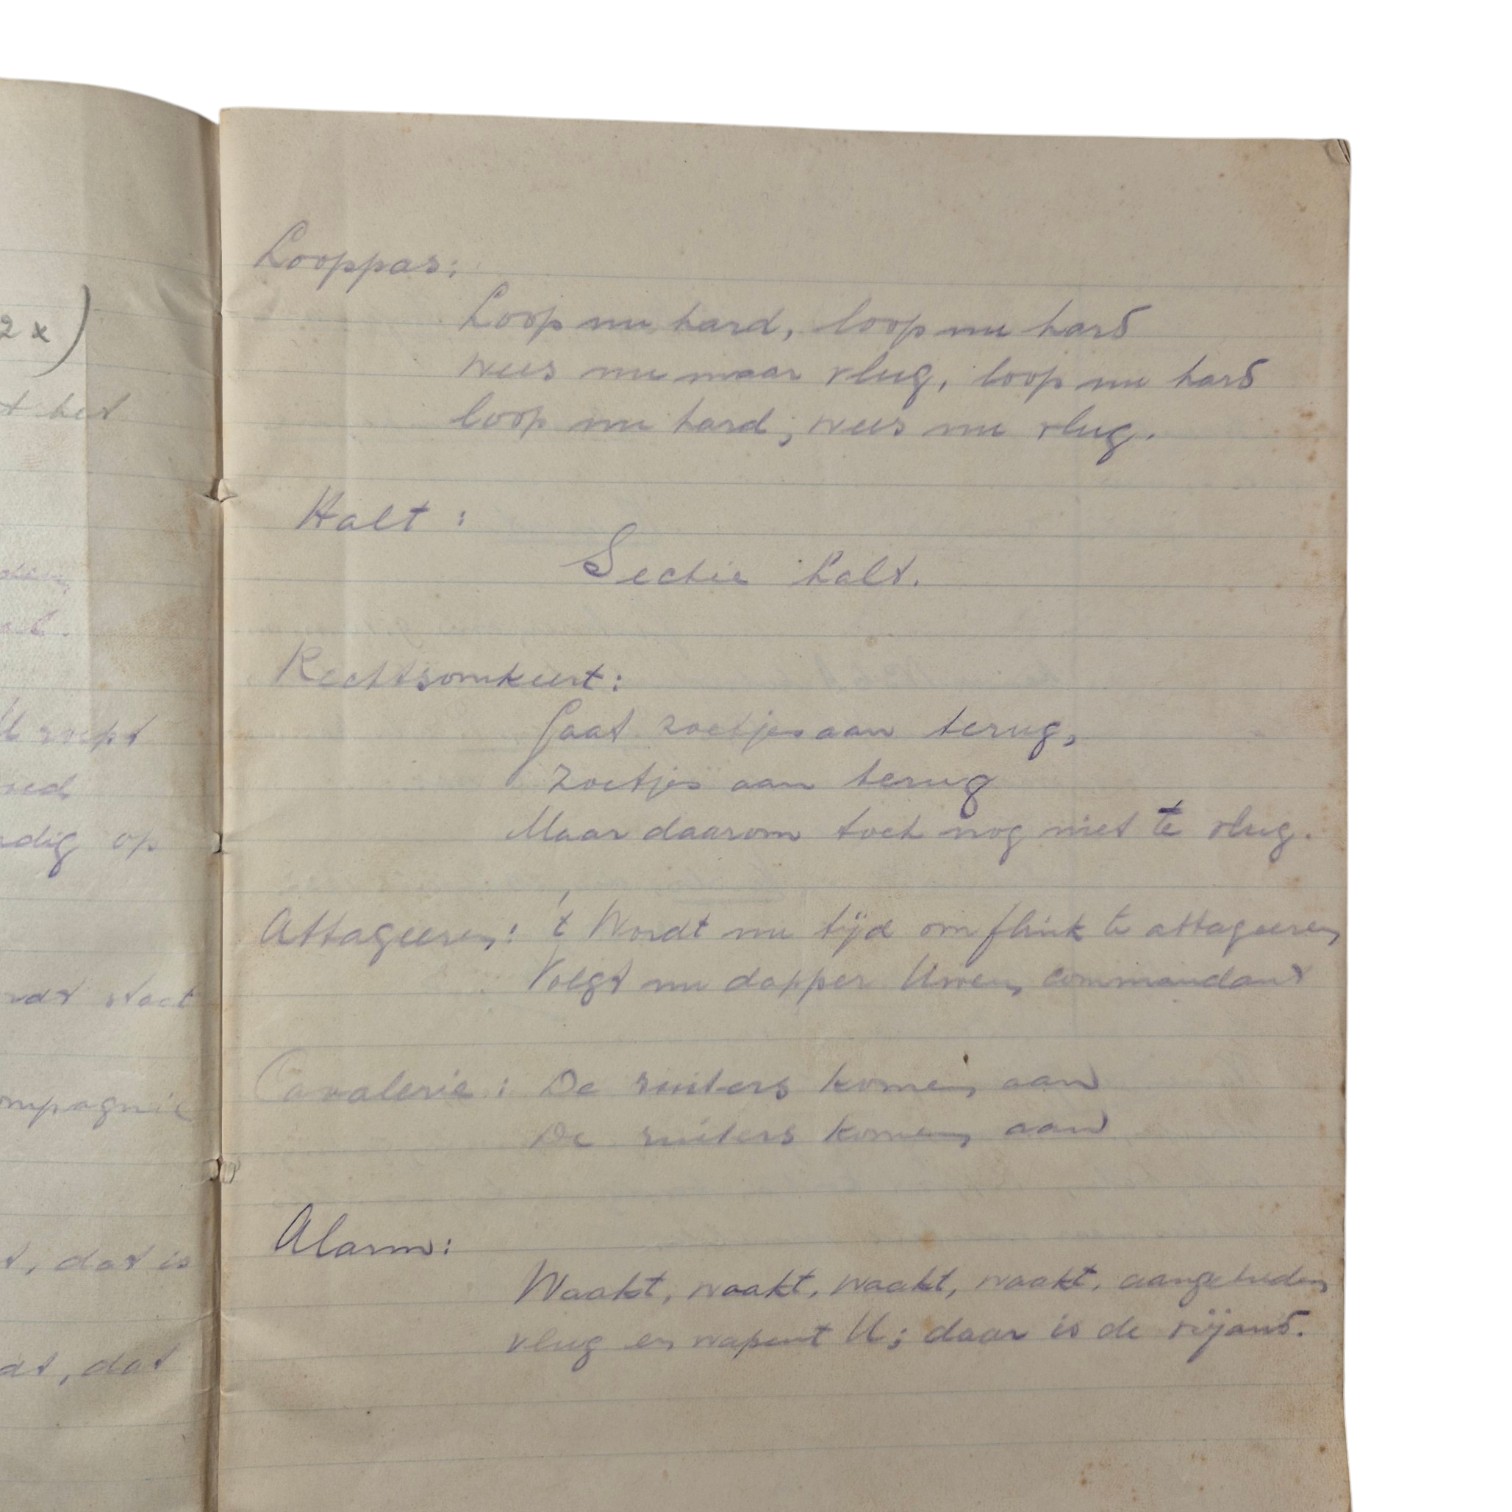 2 x)
het
U roept
dig op
staat
ompagnie
t, dat is
dt, dat
Looppas:
Loop nu hard, loop nu hard
wees nu maar vlug, loop nu hard
loop nu hard, wees nu vlug.
Halt:
Sectie halt.
Rechtsomkeert:
Gaat zoetjes aan terug,
Zoetjes aan terug
Maar daarom toch nog niet te vlug.
Attageeren: 't Wordt nu tijd om flink te attageeren
Volgt nu dapper Uwen commandant
Cavalerie: De ruiters komen aan
De ruiters komen aan
Alarm:
Waakt, waakt, waakt, waakt, aangetreden
vlug en wapent U; daar is de vijand.